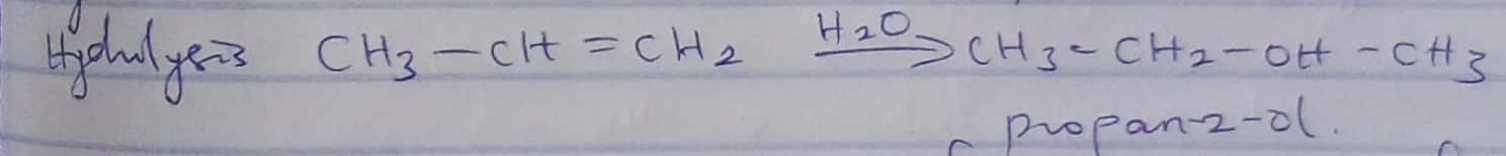 Hydrolysis CH3-CH=CH2 H2O→ CH3-CH2-OH-CH3
propan-2-ol.